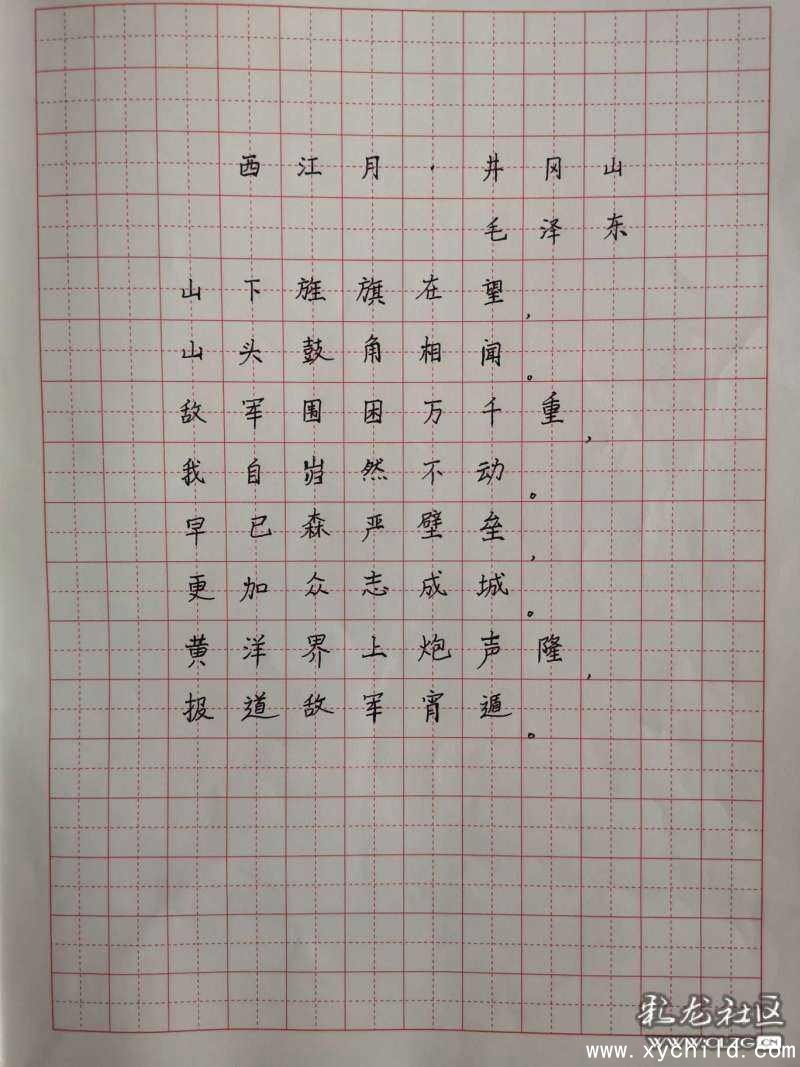 西江月·井冈山
毛泽东
山下旌旗在望，
山头鼓角相闻。
敌军围困万千重，
我自岿然不动。
早已森严壁垒，
更加众志成城。
黄洋界上炮声隆，
报道敌军宵遁。
彩龙社区
WWW.CLZG.CN
www.xychild.com